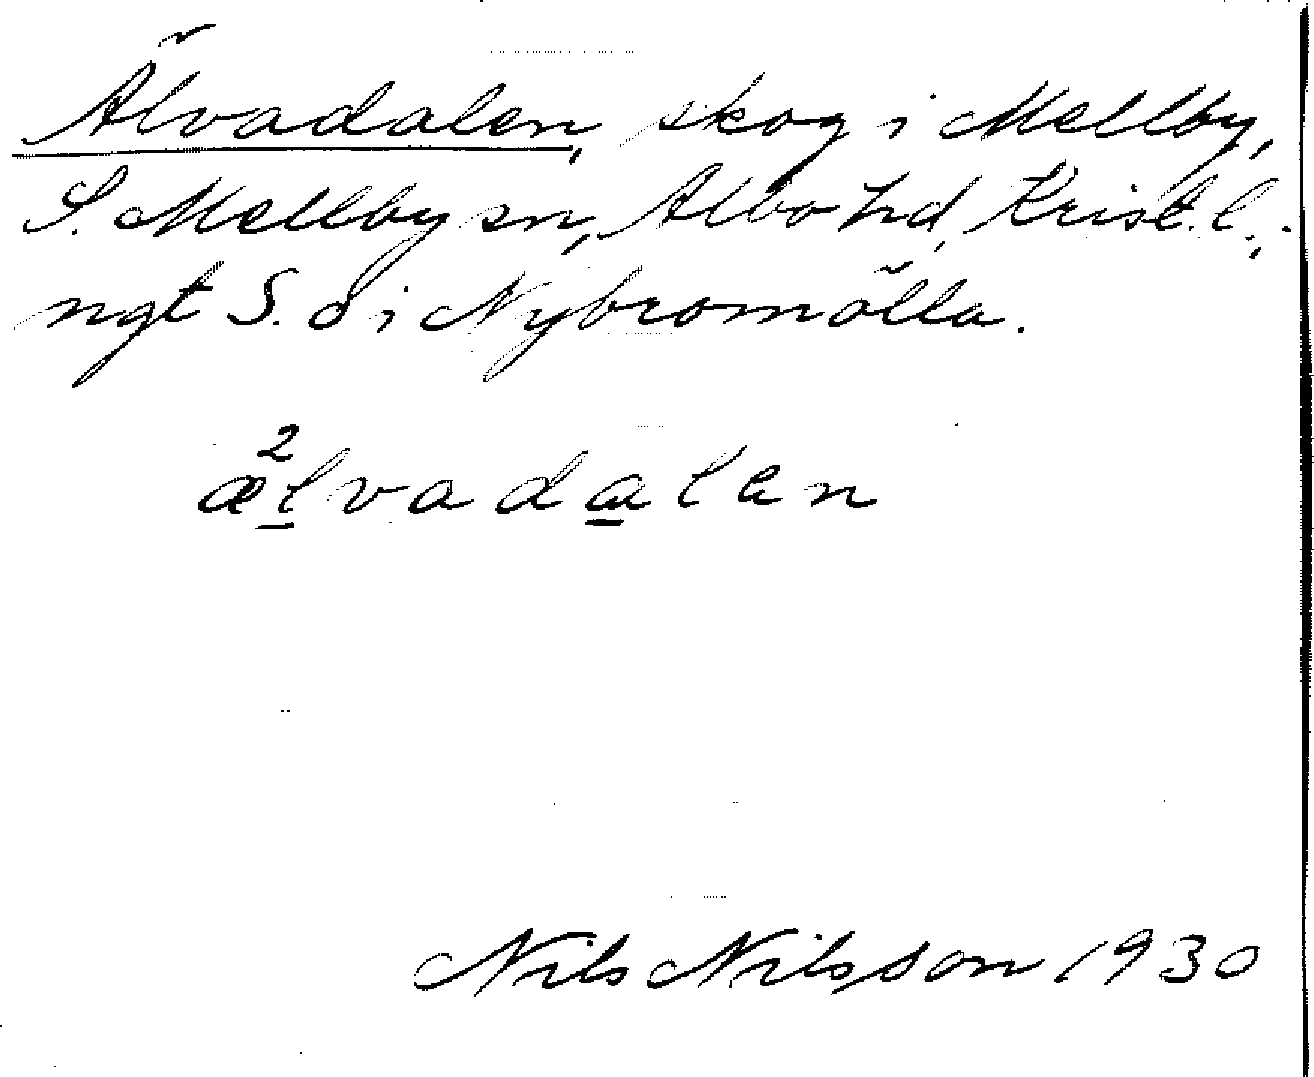 Älvadalen, skog i Mellby,
S. Mellby sn, Albo hd, Krist. l.,
ngt S. o i Nybromölla.
æ²lvadalen
Nils Nilsson 1930